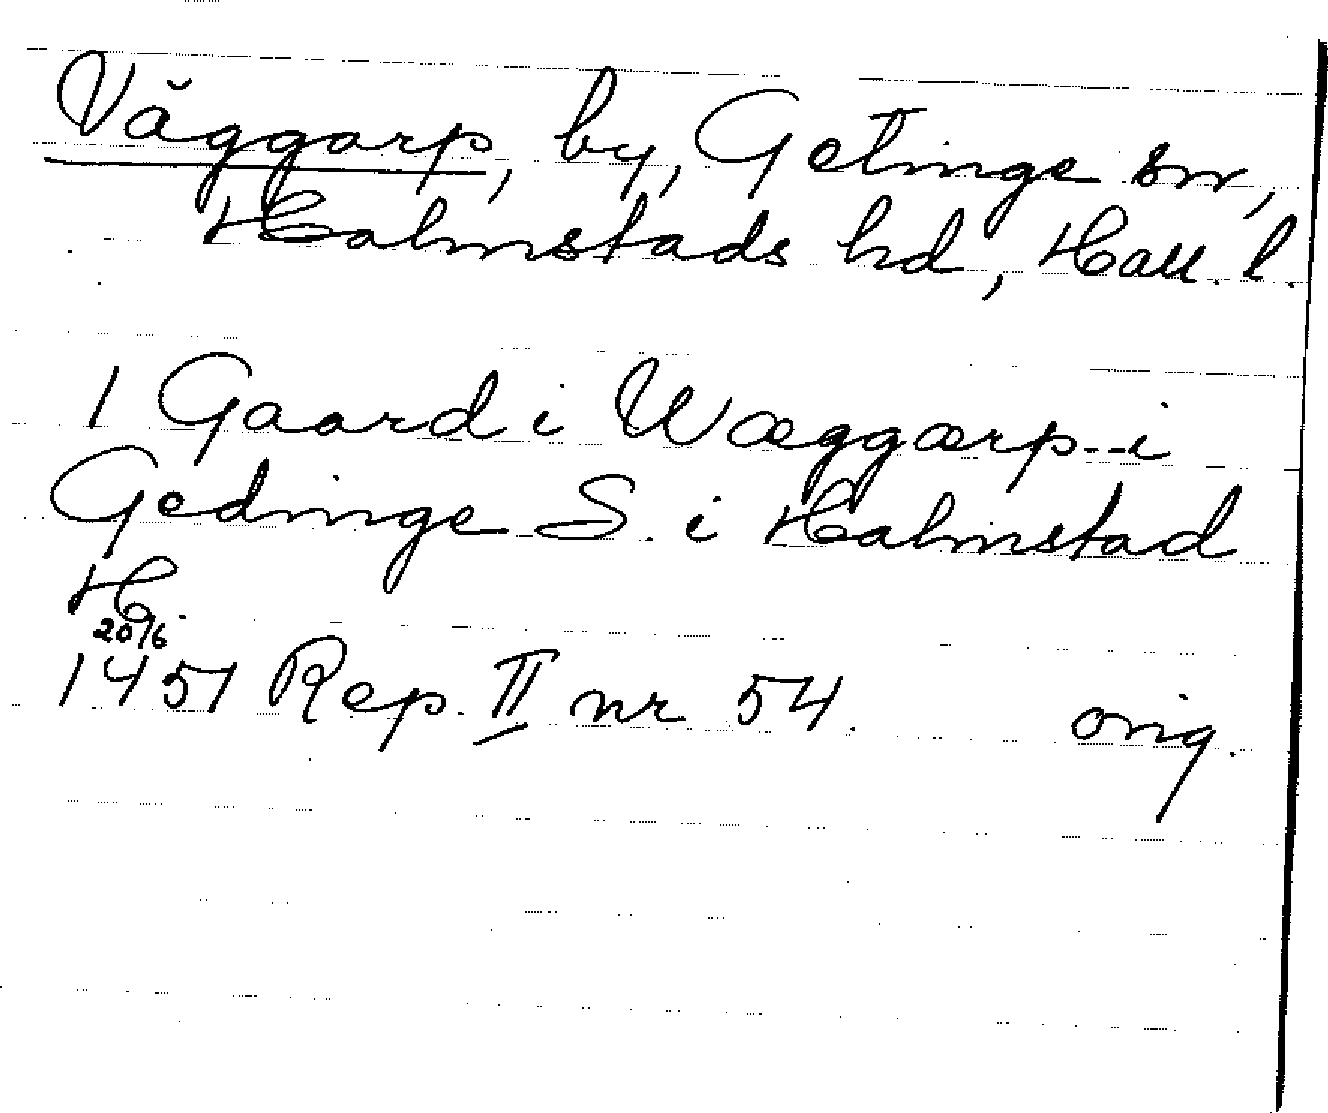 Väggarp, by, Getinge sn,
Halmstads hd, Hall. l.
1 Gaard i Wæggærp--i
Gedinge S. i Halmstad
H.
20/6
1451 Rep. II nr 54. orig.